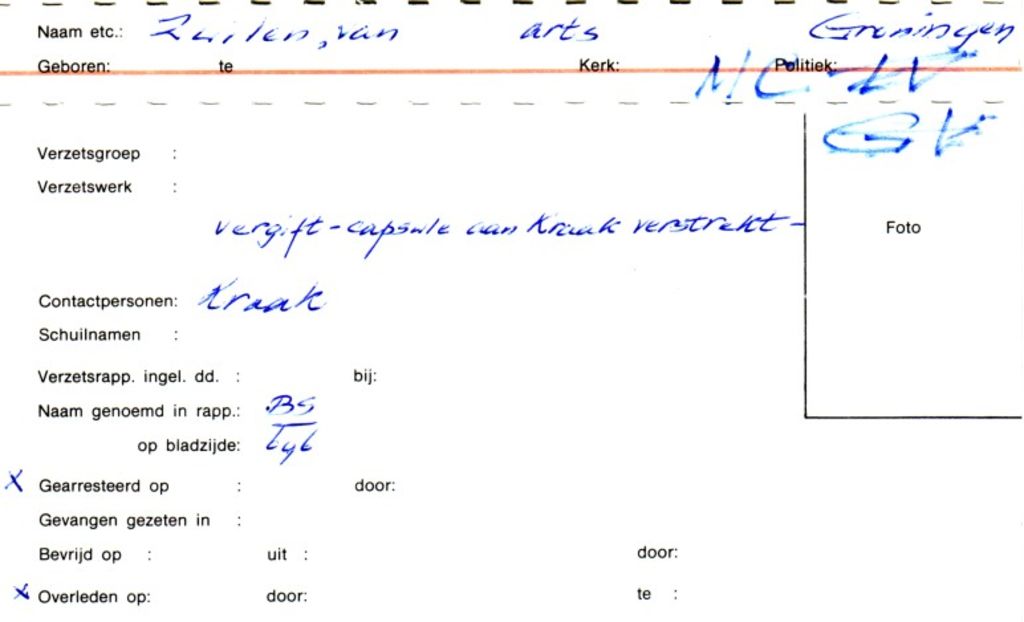 Naam etc.: Zuilen, van arts Groningen
Geboren: te Kerk: Politiek:
MC-LV
GV
Verzetsgroep :
Verzetswerk :
vergift-capsule aan Kraak verstrekt-
Foto
Contactpersonen: Kraak
Schuilnamen :
Verzetsrapp. ingel. dd. : bij:
Naam genoemd in rapp.: BS
op bladzijde:
X Gearresteerd op : door:
Gevangen gezeten in :
Bevrijd op : uit : door:
X Overleden op: door: te :